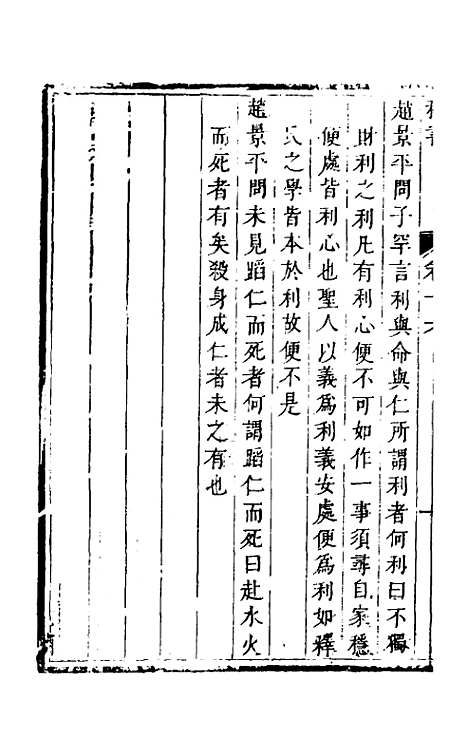 趙景平問子罕言利與命與仁所謂利者何利曰不獨
財利之利凡有利心便不可如作一事須尋自家穩
便處皆利心也聖人以義爲利義安處便爲利如釋
氏之學皆本於利故便不是
趙景平問未見蹈仁而死者何謂蹈仁而死曰赴水火
而死者有矣殺身成仁者未之有也